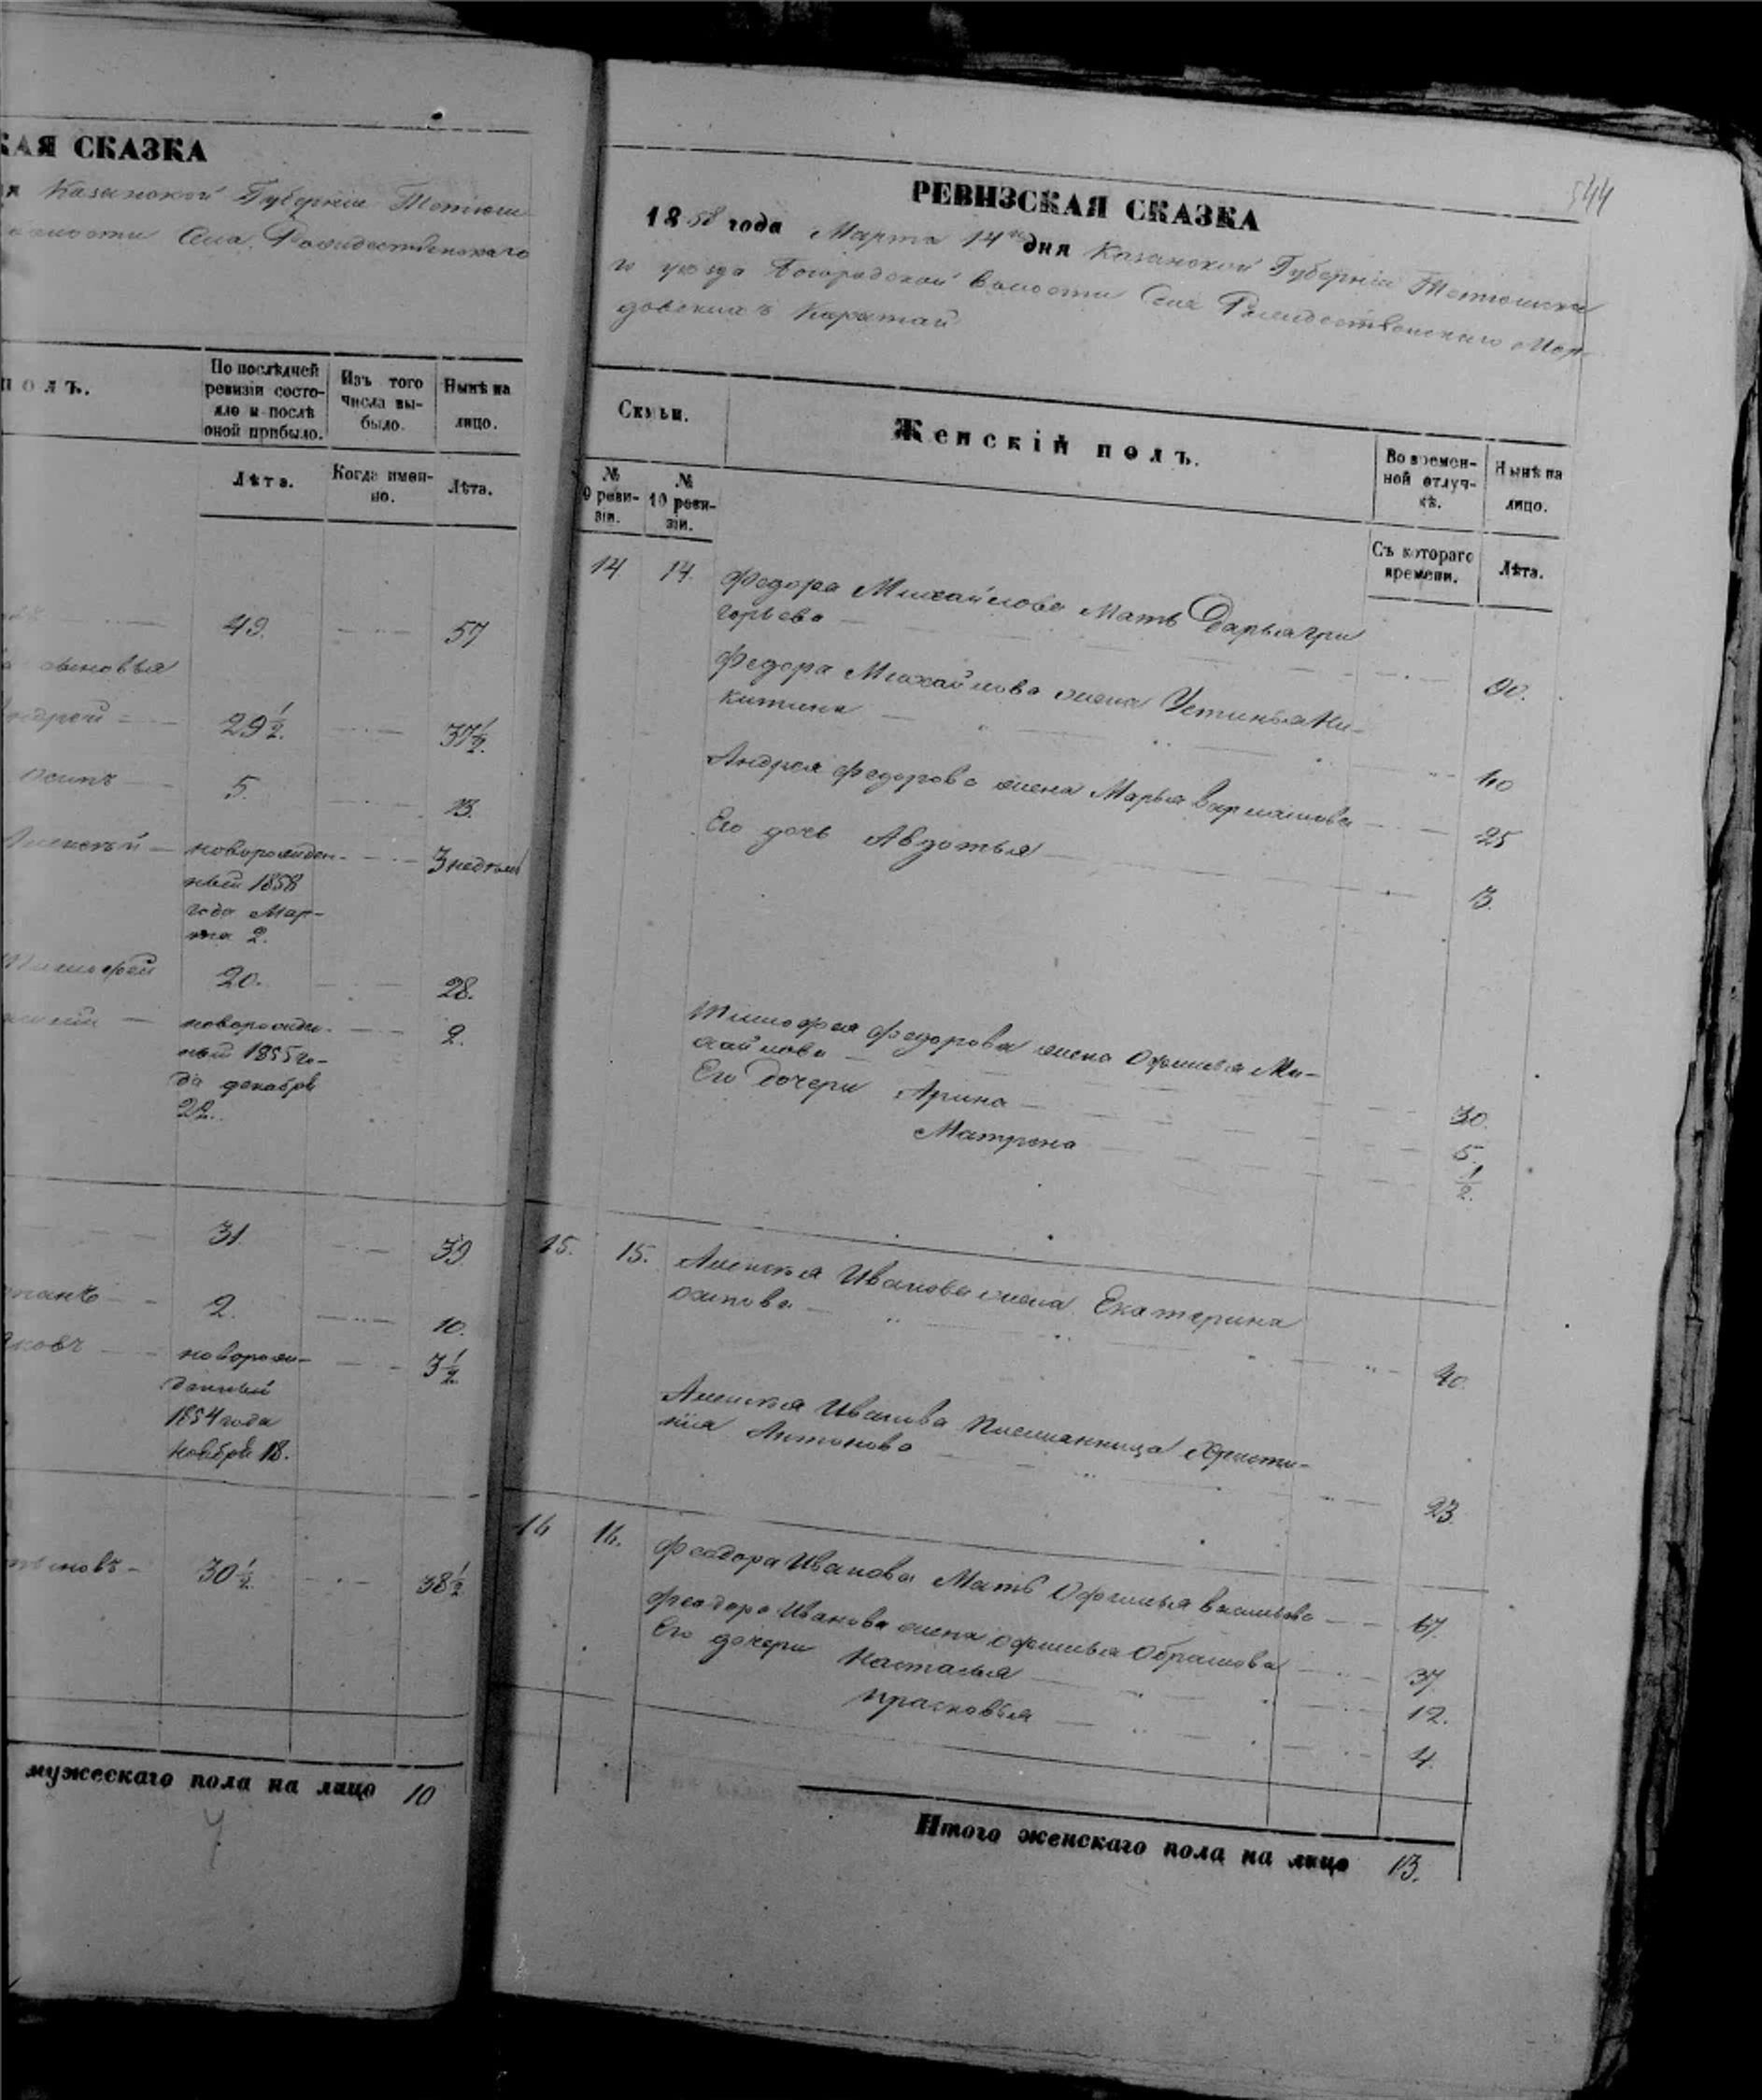 КАЯ СКАЗКА
Казанской Губерніи Тетюш
Села Рождественскаго
полъ.
По послѣдней
ревизіи состо-
яло и послѣ
оной прибыло.
Изъ того
числа вы-
было.
Нынѣ на
лицо.
Лѣта.
Когда имен-
но.
Лѣта.
49. 57
сыновья
29 1/2. 37 1/2.
осипъ 5. 13.
Алексѣй новорожден- 3 недѣли
ный 1858
года Мар-
та 2.
Тимофей 20. 28.
новорожден- 2.
ный 1855 го-
да декабря
22.
31. 39
2. 10.
новорож- 3 1/2
денный
1854 года
ноября 18.
30 1/2. 38 1/2
мужескаго пола на лицо 10
544
РЕВИЗСКАЯ СКАЗКА
1858 года Марта 14го дня Казанской Губерніи Тетюшска
го уезда Богородской волости Села Рождественскаго Мор-
довских Каратай
Семьи.
Женскій полъ.
Во времен-
ной отлуч-
кѣ.
Нынѣ на
лицо.
№
9 реви-
зіи.
№
10 реви-
зіи.
Съ котораго
времени.
Лѣта.
14 14. Федора Михайлова Мать Дарья Гри
горьева 90.
Федора Михайлова жена Устинья Ни-
китина 40
Андрея Федорова жена Марья 25
Его дочь Авдотья 13.
Тимофея Федорова жена Офимья Ми-
хайлова 30.
Его дочери Арина 5.
Матрена 1/2.
15. 15. Алексѣя Иванова жена Екатерина
осипова 40.
Алексѣя Иванова племянница Христи-
нiя Антонова 23.
16 16. Феодора Иванова Мать Офимья васильева 67.
Феодора Иванова жена Офимья Обрамова 37
Его дочери Наталья 12.
прасковья 4.
Итого женскаго пола на лицо 13.